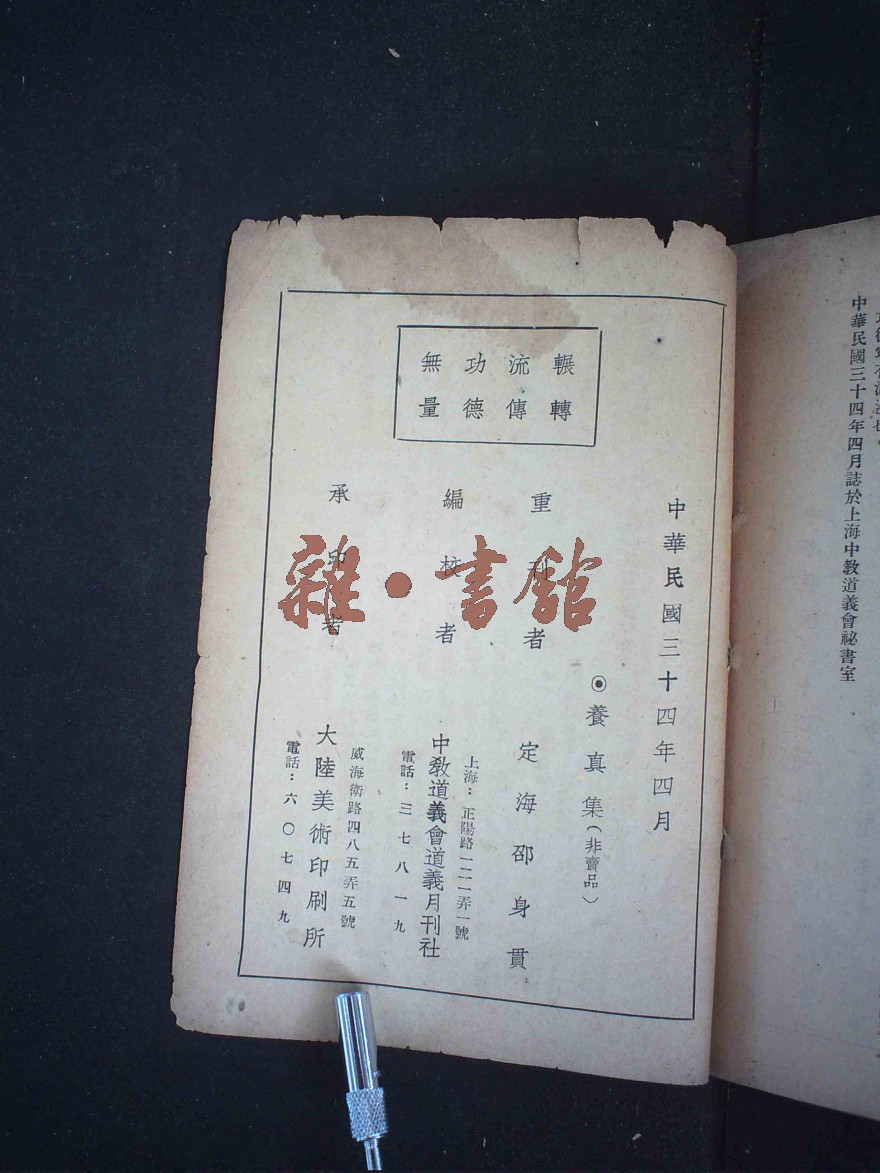 中華民國三十四年四月誌於上海中教道義會祕書室
輾轉
流傳
功德
無量
中華民國三十四年四月
◉養真集(非賣品)
重刊者 定海邵身貫
編校者 上海:正陽路一二一弄一號
中教道義會道義月刊社
電話:三七八一九
承印者 威海衛路四八五弄五號
大陸美術印刷所
電話:六〇七四九
雜·書館